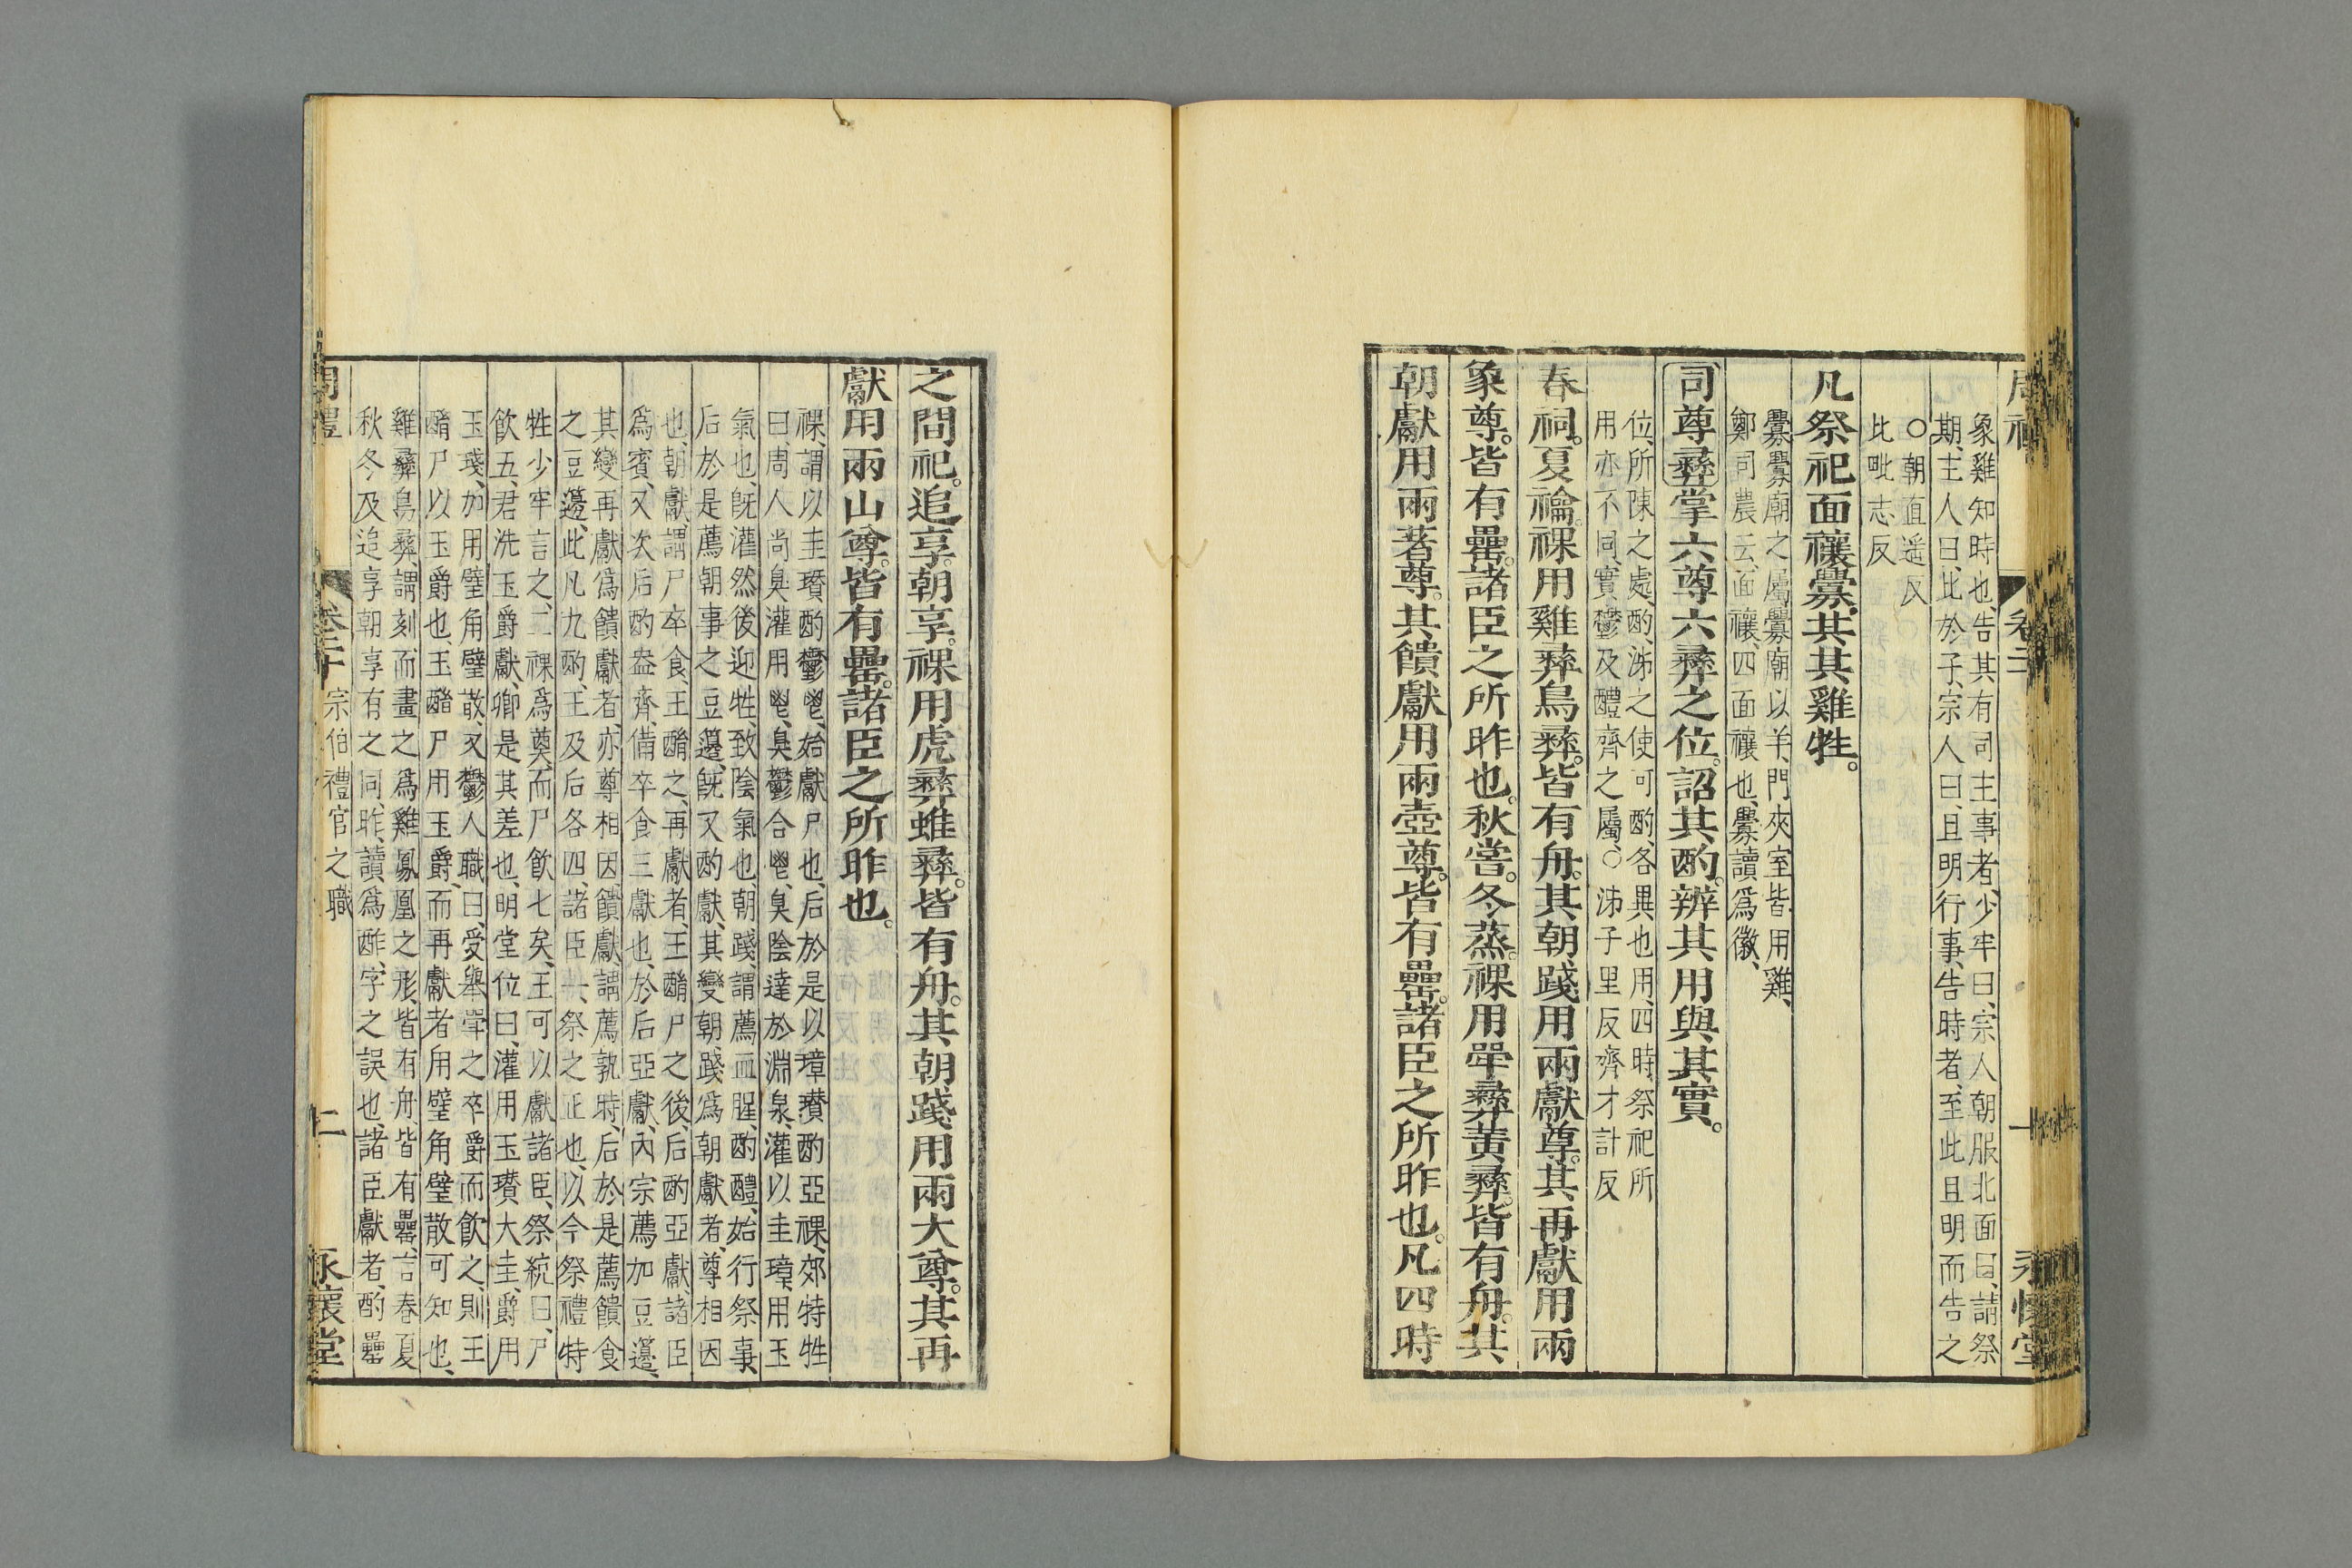 象雞知時也、告其有司主事者、少牢曰、宗人朝服北面曰、請祭
期、主人曰、比於子、宗人曰、且明行事、告時者、至此且明而告之
○朝直遥反
比毗志反
凡祭祀面禳釁、共其雞牲。
釁釁廟之屬、釁廟以羊、門夾室皆用雞、
鄭司農云、面禳、四面禳也、釁讀爲徽、
司尊彝掌六尊六彝之位。詔其酌。辨其用與其實。
位、所陳之處、酌、泲之使可酌、各異也、用、四時祭祀所
用亦不同、實、鬱及醴齊之屬、○泲子里反齊才計反
春祠。夏禴。祼用雞彝鳥彝。皆有舟。其朝踐用兩獻尊。其再獻用兩
象尊。皆有罍。諸臣之所昨也。秋嘗。冬蒸。祼用斝彝黃彝。皆有舟。其
朝獻用兩著尊。其饋獻用兩壺尊。皆有罍。諸臣之所昨也。凡四時
之間祀。追享。朝享。祼用虎彝蜼彝。皆有舟。其朝踐用兩大尊。其再
獻用兩山尊。皆有罍。諸臣之所昨也。
祼、謂以圭瓚酌鬱鬯、始獻尸也、后於是以璋瓚酌亞祼、郊特牲
曰、周人尚臭、灌用鬯、臭鬱合鬯、臭陰達於淵泉、灌以圭璋、用玉
氣也、旣灌然後迎牲、致陰氣也、朝踐、謂薦血腥、酌醴、始行祭事、
后於是薦朝事之豆籩、旣又酌獻、其變朝踐爲朝獻者、尊相因
也、朝獻、謂尸卒食王酳之、再獻者、王酳尸之後、后酌亞獻、諸臣
爲賓、又次后酌盎齊、備卒食三獻也、於后亞獻、內宗薦加豆籩、
其變再獻爲饋獻者、亦尊相因、饋獻、謂薦孰時、后於是薦饋食
之豆籩、此凡九酌、王及后各四、諸臣一、祭之正也、以今祭禮特
牲少牢言之、二祼爲奠、而尸飮七矣、王可以獻諸臣、祭統曰、尸
飮五、君洗玉爵獻卿、是其差也、明堂位曰、灌用玉瓚大圭、爵用
玉琖、加用璧角璧散、又鬱人職曰、受舉斝之卒爵而飮之、則王
酳尸以玉爵也、玉酳尸用玉爵、而再獻者用璧角璧散可知也、
雞彝鳥彝、謂刻而畫之爲雞鳳凰之形、皆有舟、皆有罍、言春夏
秋冬及追享朝享有之同、昨讀爲酢、字之誤也、諸臣獻者、酌罍
周禮 卷二十 宗伯禮官之職 二 永懷堂